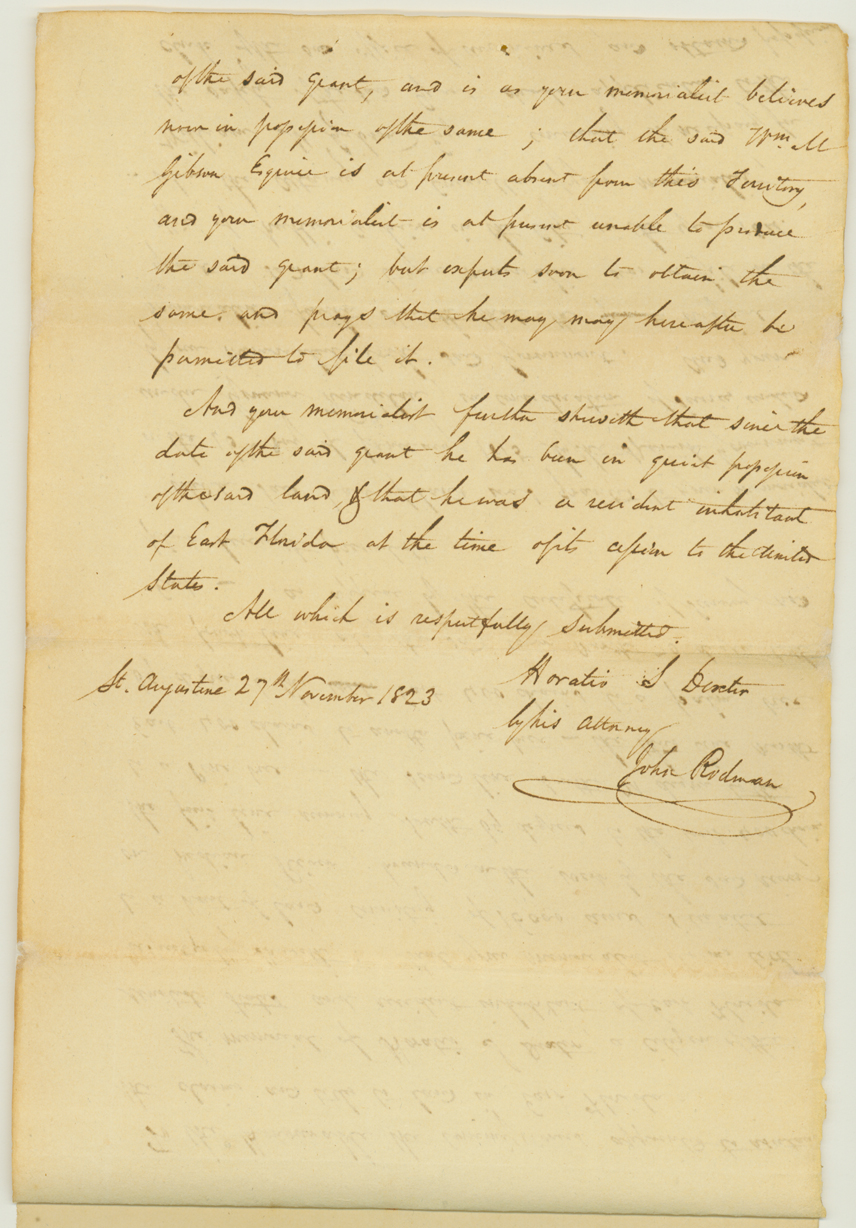 of the said grant, and is as your memorialist believes
now in possession of the same; that the said Wm. M
Gibson Esquire is at present absent from this Territory,
and your memorialist is at present unable to produce
the said grant; but expects soon to obtain the
same. and prays that he may may hereafter be
permitted to file it.
And your memorialist further sheweth that since the
date of the said grant he has been in quiet possession
of the said land, & that he was a resident inhabitant
of East Florida at the time of its cession to the United
States.
All which is respectfully submitted.
St. Augustine 27th November 1823
Horatio S Dexter
by his attorney
John Rodman